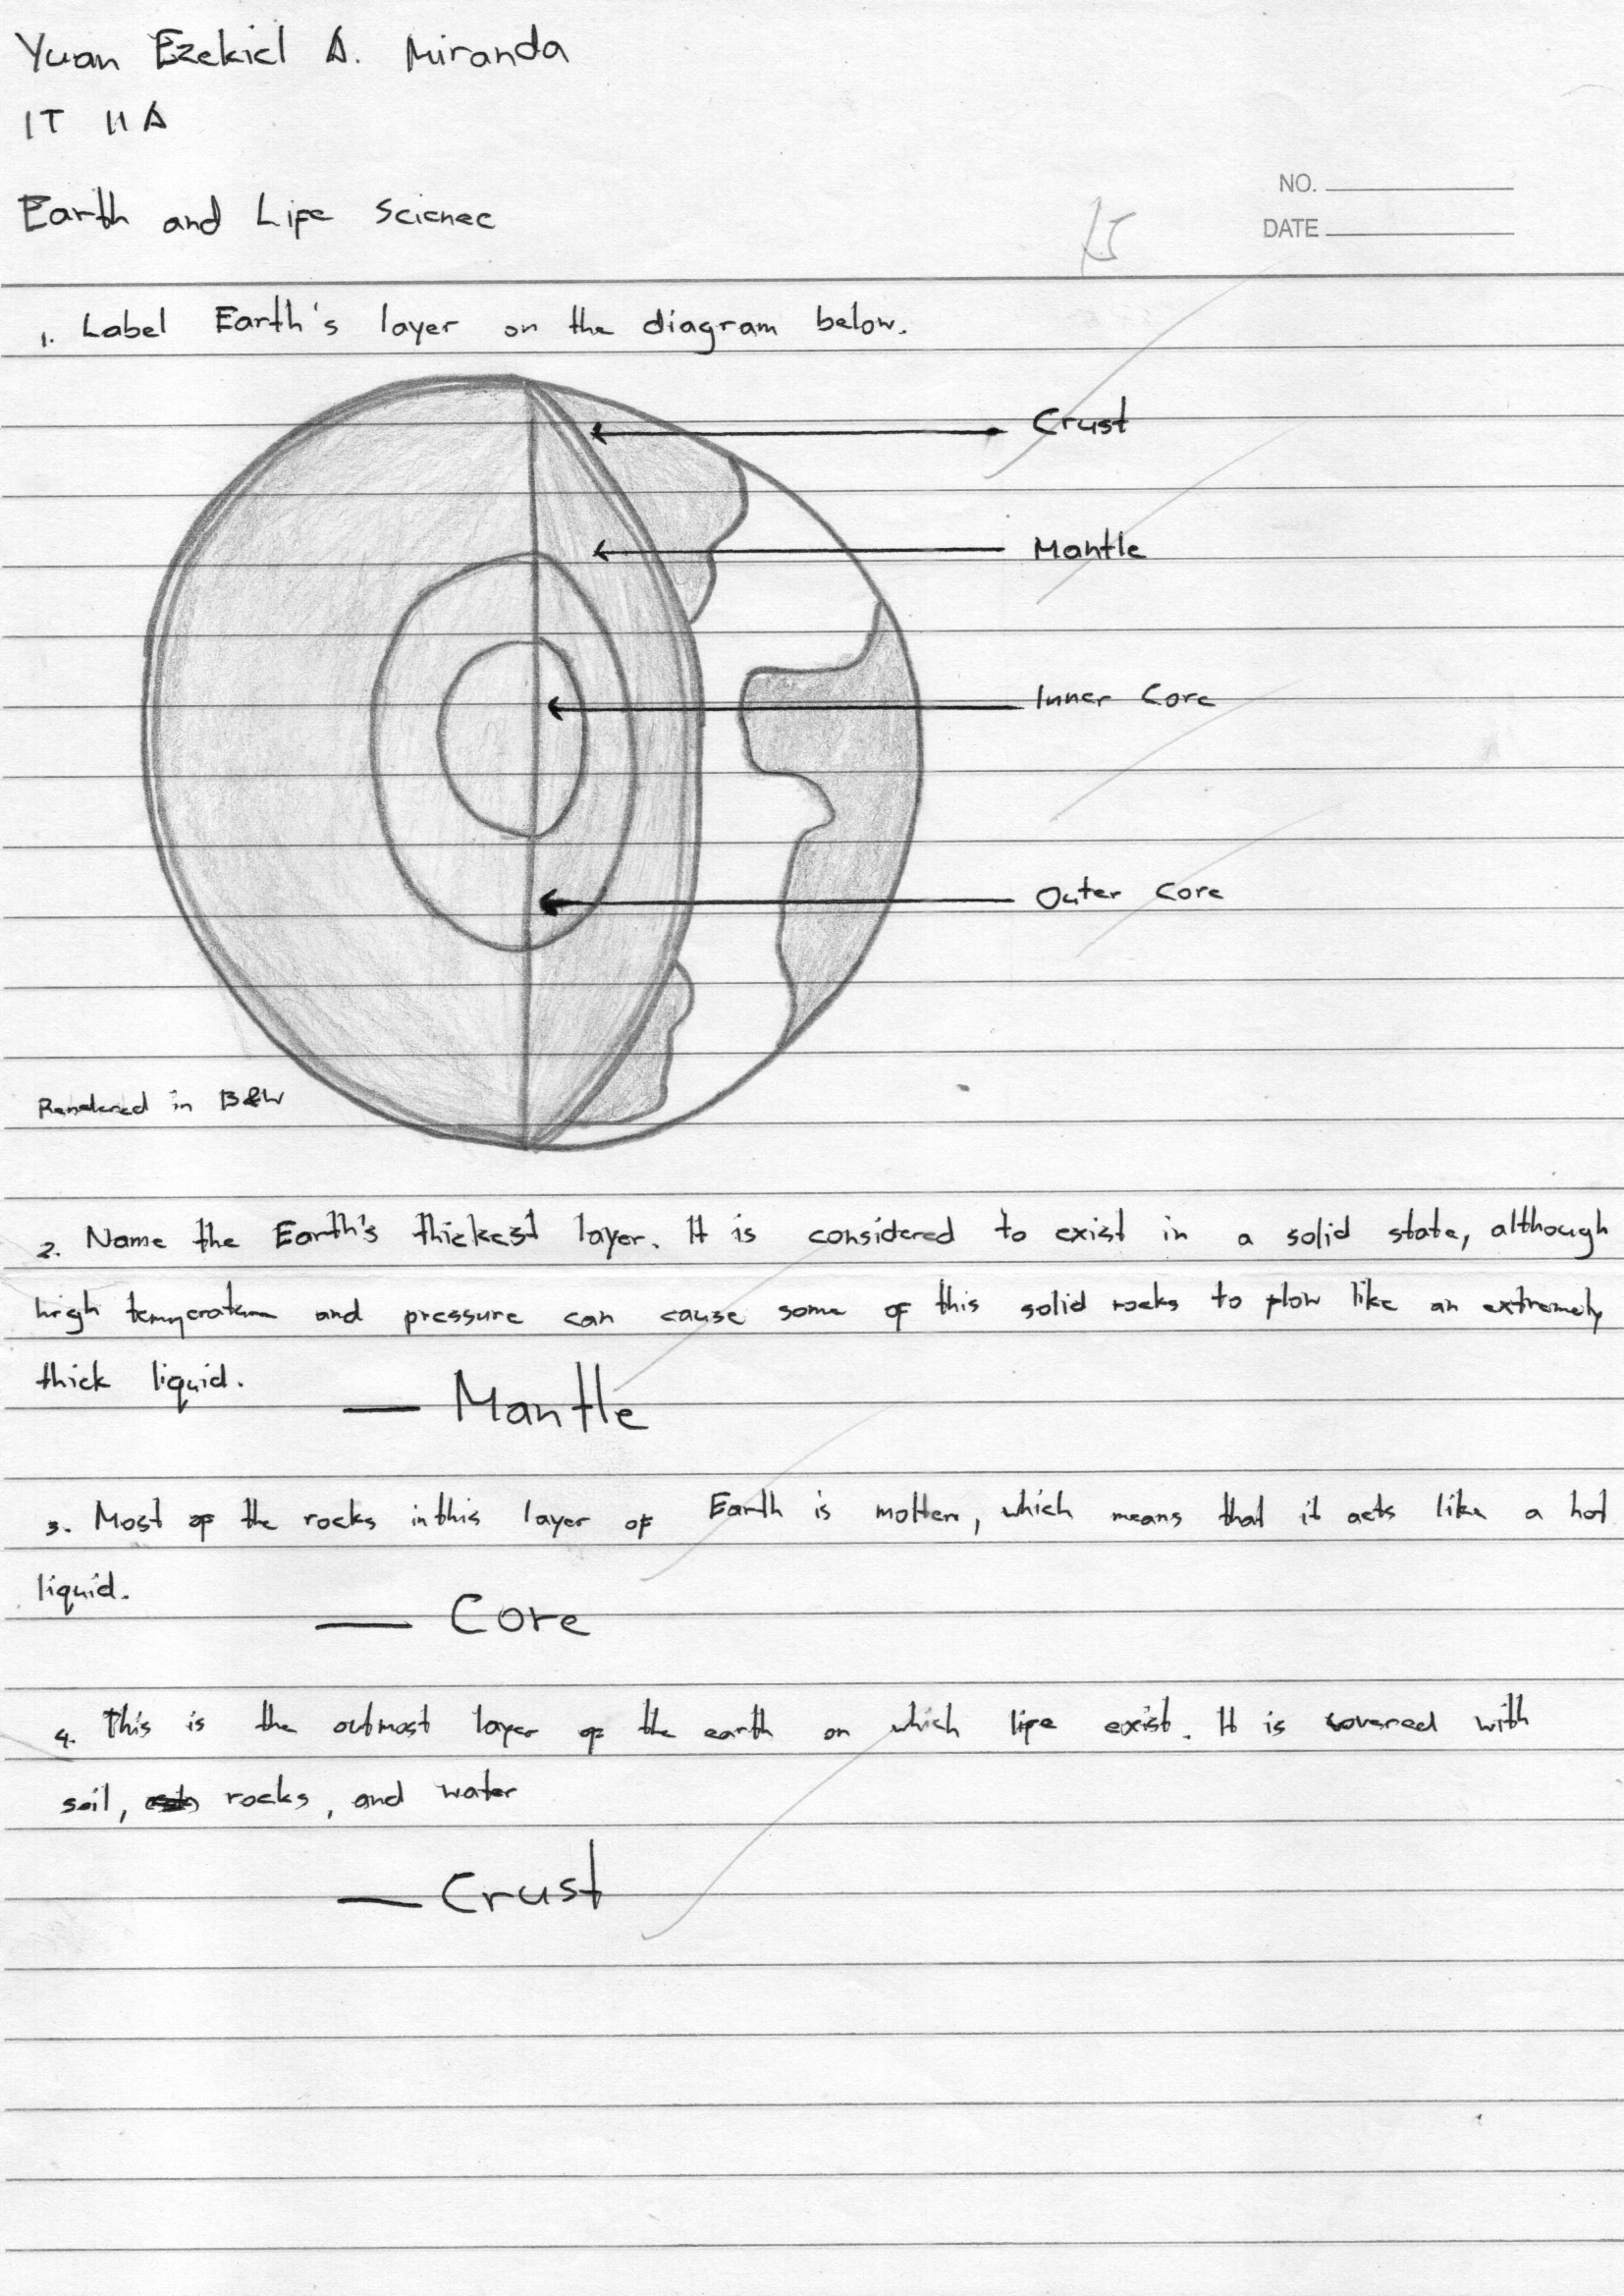 Yuan Ezekiel A. Miranda
IT 11A
Earth and Life Science
NO.
DATE
15
1. Label Earth's layer on the diagram below.
Crust
Mantle
Inner Core
Outer Core
Rendered in B&W
2. Name the Earth's thickest layer. It is considered to exist in a solid state, although
high temperature and pressure can cause some of this solid rocks to flow like an extremely
thick liquid.
— Mantle
3. Most of the rocks in this layer of Earth is molten, which means that it acts like a hot
liquid.
— Core
4. This is the outmost layer of the earth on which life exist. It is covered with
soil, rocks, and water
— Crust